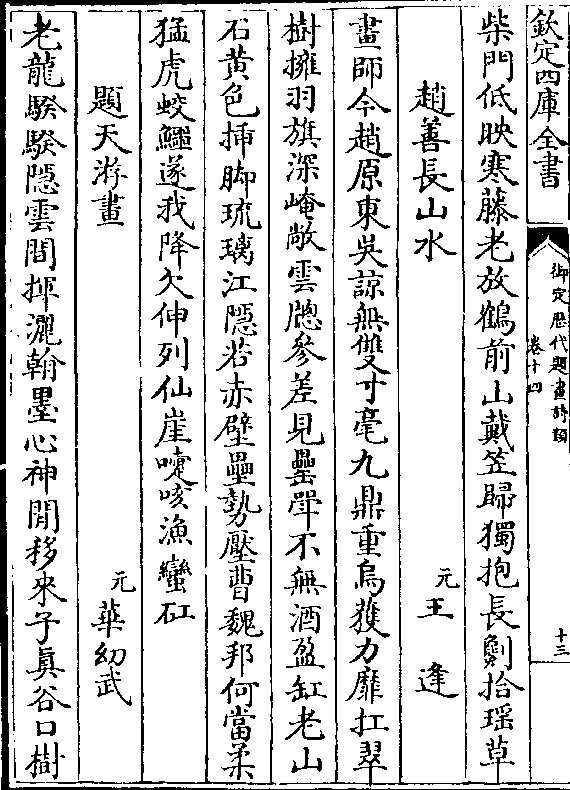 欽定四庫全書
御定歷代題畫詩類
卷十四
十三
柴門低映寒藤老放鶴前山戴笠歸獨抱長劍拾瑶草
趙善長山水
元王逢
畫師今趙原東吳諒無雙寸毫九鼎重烏獲力靡扛翠
樹擁羽旗深崦敞雲牕參差見罍斝不無酒盈缸老山
石黃色揷脚琉璃江隱若赤壁壘勢壓曹魏邦何當柔
猛虎蛟鱷遂我降欠伸列仙崖嚏咳漁蠻矼
題天游畫
元華幼武
老龍騤騤隱雲間揮灑翰墨心神閒移來子真谷口樹